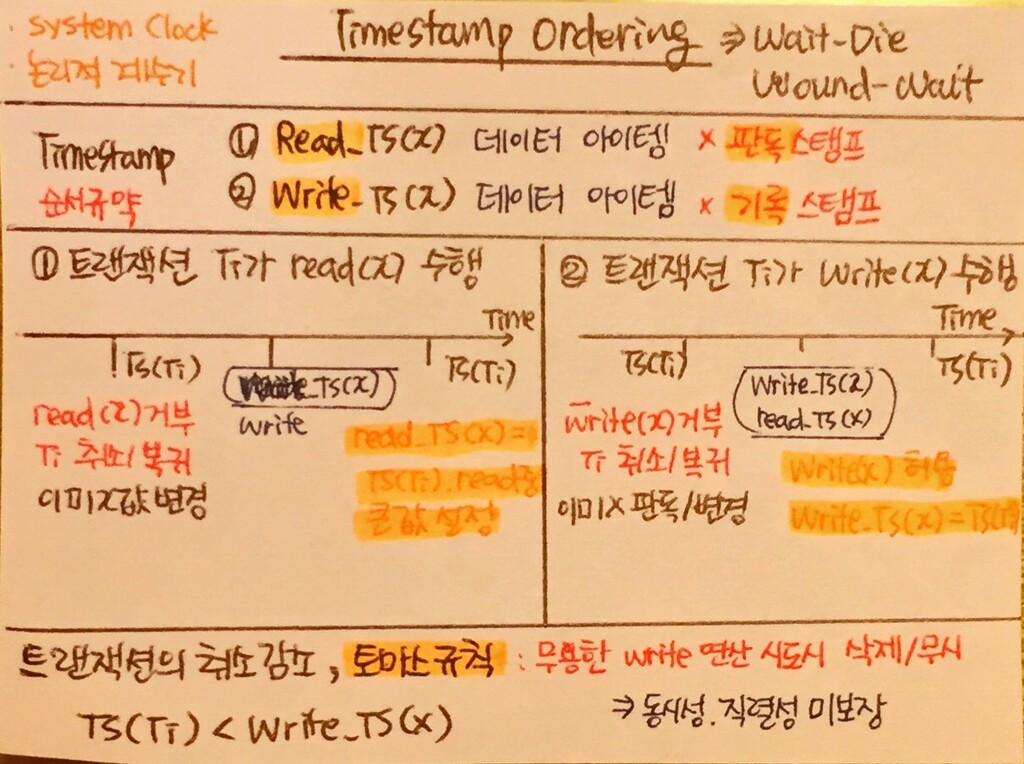 · system Clock
· 논리적 계수기
Timestamp Ordering ⇒ Wait-Die
Wound-Wait
Timestamp
순서규약
① Read_TS(x) 데이터 아이템 x 판독스탬프
② Write_TS(x) 데이터 아이템 x 기록 스탬프
① 트랜잭션 Ti가 read(x) 수행
Time
TS(Ti)
Write_TS(x)
TS(Ti)
write
read(x)거부
Ti 취소/복귀
이미 x값 변경
read_TS(x)=
TS(Ti).read중
큰값 설정
② 트랜잭션 Ti가 Write(x) 수행
Time
TS(Ti)
Write_TS(x)
read_TS(x)
TS(Ti)
write(x)거부
Ti 취소/복귀
이미 x 판독/변경
Write(x) 허용
Write_TS(x)=TS(Ti)
트랜잭션의 취소감소, 토마스규칙 : 무용한 write 연산 시도시 삭제/무시
TS(Ti) < Write_TS(x)
⇒ 동시성.직렬성 미보장